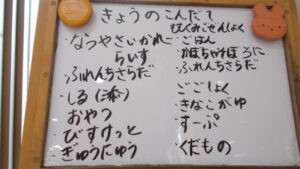 きょうのこんだて
・なつやさいかれー
らいす
・ふれんちさらだ
・しる(添)
おやつ
・びすけっと
・ぎゅうにゅう
むくみごぜんしょく
・ごはん
・かぼちゃそぼろに
・ふれんちさらだ
ごごしょく
・きなこがゆ
・すーぷ
・くだもの